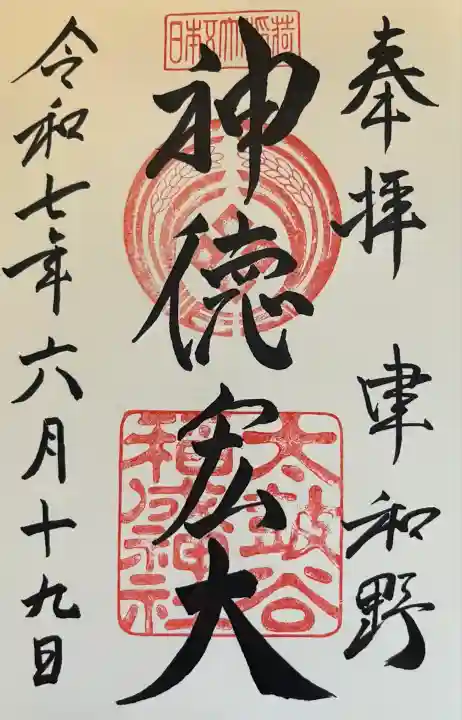 奉拝 津和野
日本五大稲荷
神徳宏大
太鼓谷
稲成神社
令和七年六月十九日